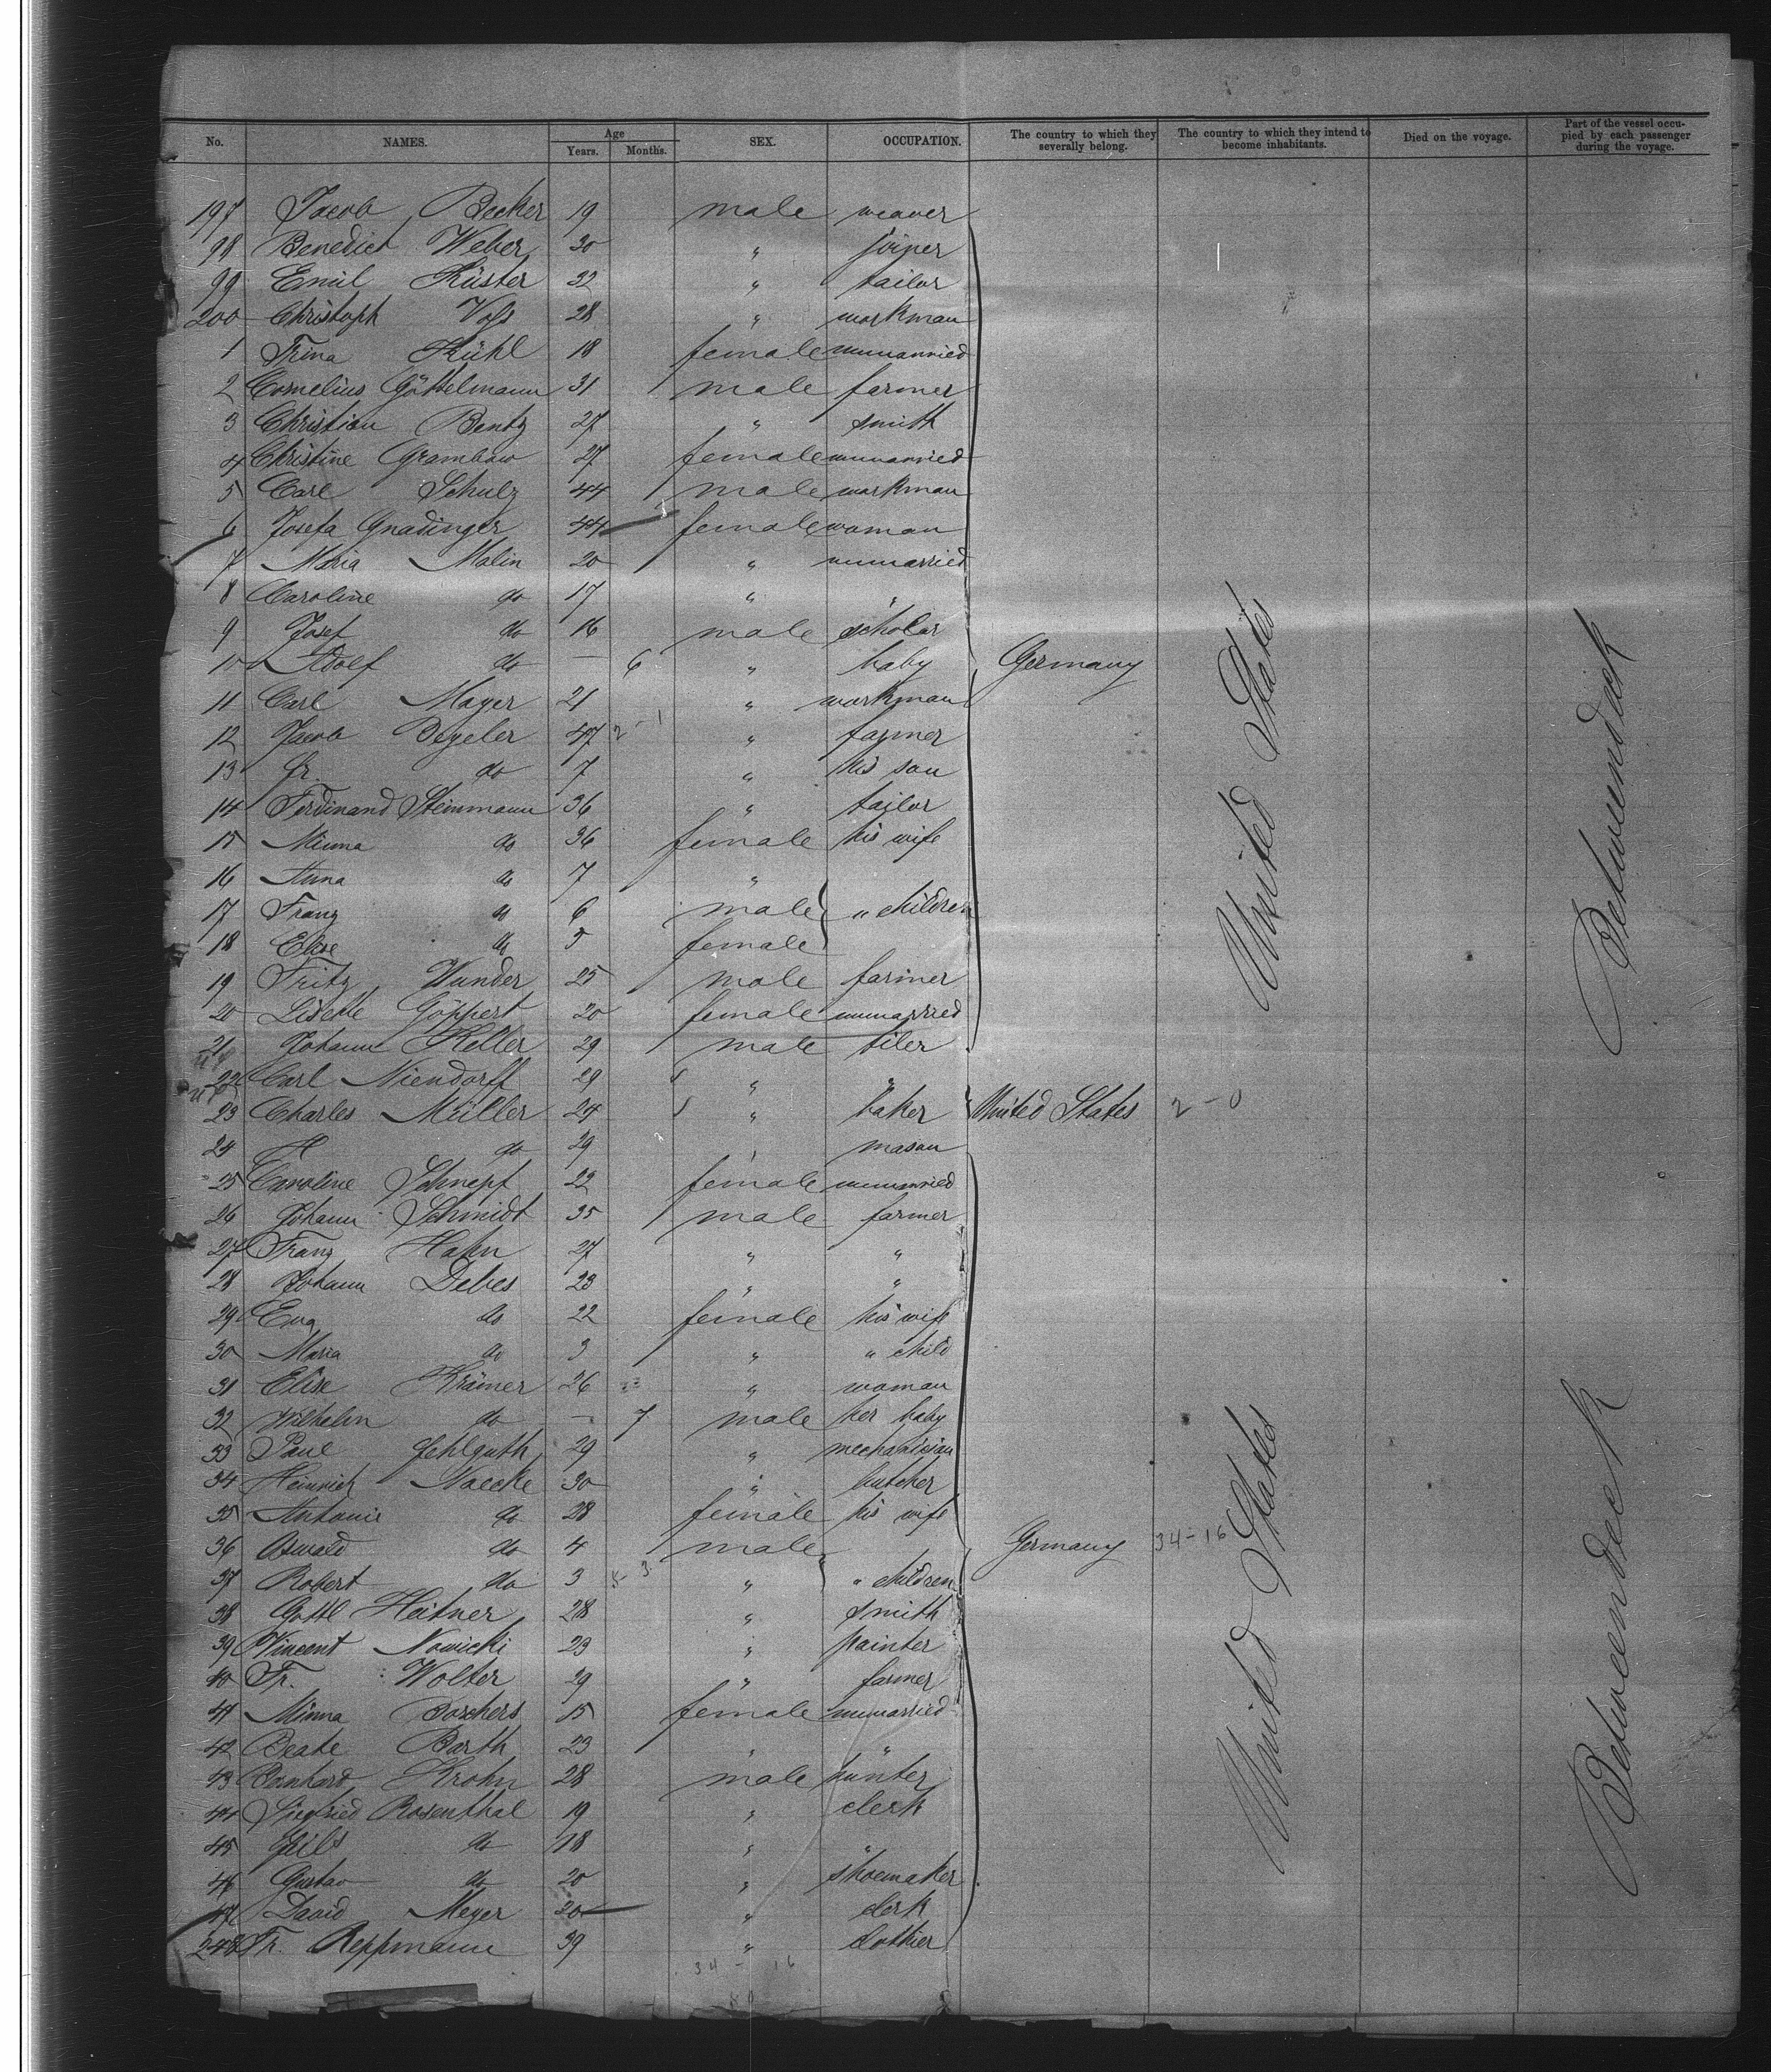 No. NAMES. Age Years. Months. SEX. OCCUPATION. The country to which they severally belong. The country to which they intend to become inhabitants. Died on the voyage. Part of the vessel occupied by each passenger during the voyage.
197 Jacob Becker 19 male weaver
98 Benedict Weber 30 " joiner
99 Emil Küster 32 " tailor
200 Christoph Voss 28 " workman
1 Trina Kühl 18 female unmarried
2 Cornelius Göttelmann 31 male farmer
3 Christian Bentz 27 " smith
4 Christine Grambow 27 female unmarried
5 Carl Schulz 44 male workman
6 Josefa Gnadinger 44 female woman
7 Maria Malin 20 " unmarried
8 Caroline do 17 " "
9 Josef do 16 male scholar
10 Adolf do — 6 " baby Germany
11 Carl Mayer 21 " workman
12 Jacob Begeler 47 2-1 " farmer
13 Fr. do 7 " his son
14 Ferdinand Steinmann 36 " tailor
15 Minna do 36 female his wife
16 Anna do 7 "
17 Franz do 6 male " children
18 Elise do 5 female
19 Fritz Wunder 25 male farmer
20 Lisette Göppert 20 female unmarried
21 Johann Keller 29 male tiler
22 Carl Niendorff 29 " "
23 Charles Müller 24 " baker United States 2-0
24 H do 29 " mason
25 Caroline Schnepf 22 female unmarried
26 Johann Schmidt 35 male farmer
27 Franz Hahn 27 " "
28 Johann Debes 23 " "
29 Eva do 22 female his wife
30 Maria do 3 " " child
31 Elise Krämer 26 " woman
32 Wilhelm do — 7 male her baby
33 Paul Fehlguth 29 " mechanician
34 Heinrich Naecke 30 " butcher
35 Antonie do 28 female his wife
36 Oswald do 4 male Germany 34-16
37 Robert do 3 " " children
38 Gottl Heitner 28 " smith
39 Vincent Nowicki 23 " painter
40 Fr. Wolter 29 " farmer
41 Minna Borchers 15 female unmarried
42 Beate Barth 23 " "
43 Bernhard Krohn 28 male hunter
44 Siegfried Rosenthal 19 " clerk
45 do 18 " "
46 Gustav do 20 " shoemaker
47 David Meyer 20 " clerk
248 Fr. Reppmann 39 " clothier
34-16
United States
Betweendeck
United States
Betweendeck